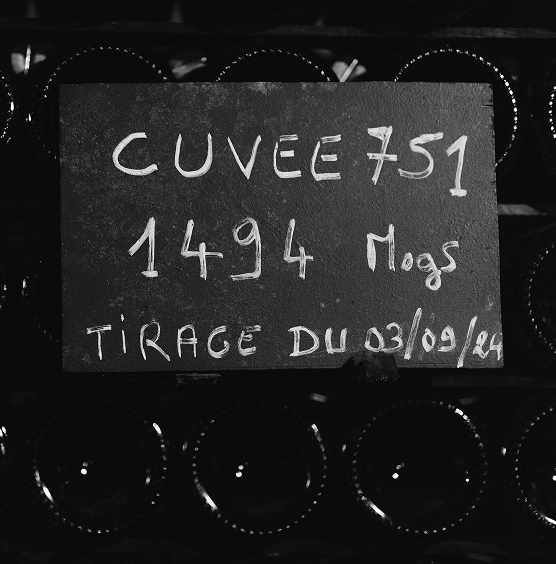 CUVEE 751
1494 Mogs
TiRAGE DU 03/09/24